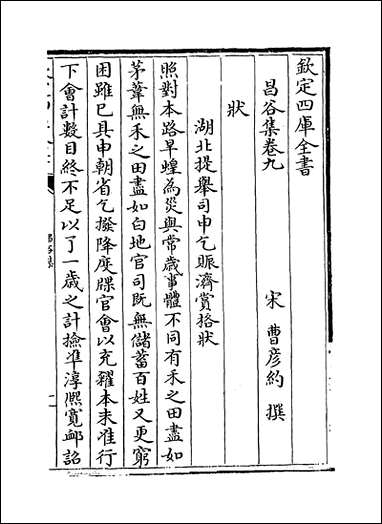 欽定四庫全書
昌谷集卷九
宋 曹彥約 撰
狀
湖北提舉司申乞賑濟賞格狀
照對本路旱蝗為災與常歲事體不同有禾之田盡如
茅葦無禾之田盡如白地官司既無儲蓄百姓又更窮
困雖已具申朝省乞撥降度牒官會以充糴本未准行
下會計數目終不足以了一歲之計撿準淳熙寬䘏詔
昌谷集